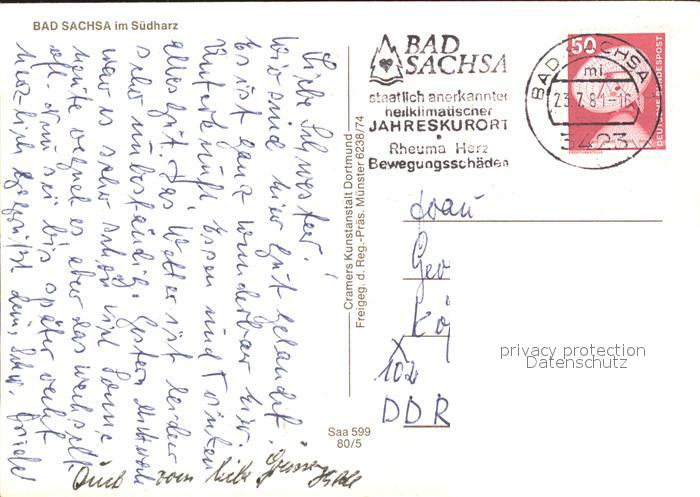 BAD SACHSA im Südharz
Liebe Schwester!
Wir sind hier gut gelandet.
Es ist ganz wunderbar hier.
Unterkunft Essen und Trinken
alles gut. Das Wetter ist leider
sehr unbeständig. Gestern Mittwoch
war es sehr schön viel Sonne
heute regnet es aber das wechselt
oft. Nun sei bis später recht
herzlich gegrüßt dein
Auch von liebe Grüsse
Cramers Kunstanstalt Dortmund
Freigeg. d. Reg.-Präs. Münster 6238/74
Saa 599
80/5
BAD
SACHSA
staatlich anerkannter
heilklimatischer
JAHRESKURORT
Rheuma Herz
Bewegungsschäden
BAD SACHSA
mi
23.7.81-16
3423
50
DEUTSCHE BUNDESPOST
Frau
Geo
Kö
X
102
DDR
privacy protection
Datenschutz